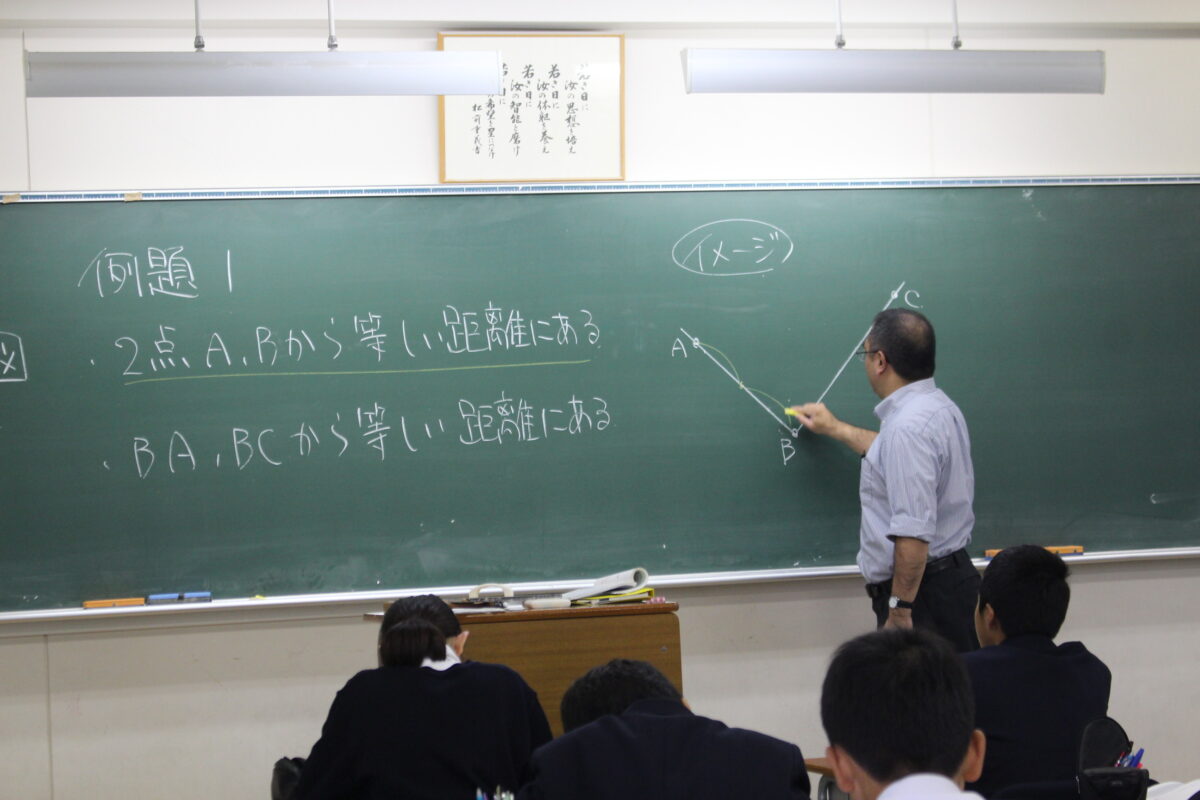 若き日に
汝の思想を培え
若き日に
汝の体躯を養え
若き日に
汝の智能を磨け
松前重義書
例題1
・2点A、Bから等しい距離にある
・BA、BCから等しい距離にある
イメージ
A
B
C